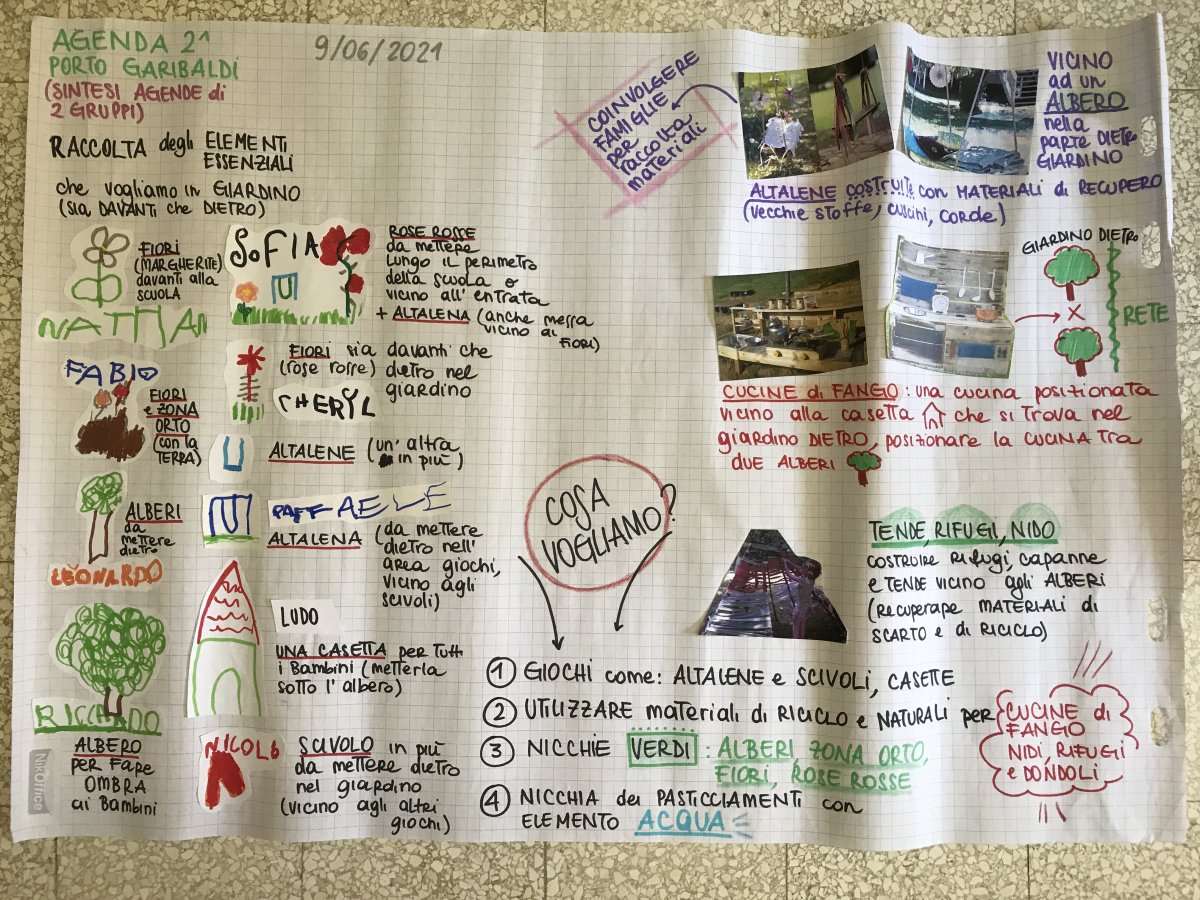 AGENDA 2^
PORTO GARIBALDI
(SINTESI AGENDE di
2 GRUPPI)
9/06/2021
RACCOLTA degli ELEMENTI
ESSENZIALI
che vogliamo in GIARDINO
(SIA DAVANTI che DIETRO)
FIORI
(MARGHERITE)
davanti alla
SCUOLA
NATHAN
SOFIA
ROSE ROSSE
da mettere
lungo il perimetro
della scuola o
vicino all'entrata
+ ALTALENA (anche messa
vicino ai
FIORI)
FABIO
FIORI
e ZONA
ORTO
(con la
TERRA)
FIORI sia davanti che
(rose rosse) dietro nel
giardino
CHERYL
ALTALENE (un'altra
in più)
ALBERI
da
mettere
dietro
LEONARDO
RAFFAELE
ALTALENA (da mettere
dietro nell'
area giochi,
vicino agli
scivoli)
RICCARDO
ALBERO
per fare
OMBRA
ai Bambini
LUDO
UNA CASETTA per tutti
i Bambini (metterla
sotto l'albero)
NICOLÒ
SCIVOLO in più
da mettere dietro
nel giardino
(vicino agli altri
giochi)
NikOffice
COINVOLGERE
FAMIGLIE
per
raccolta
materiali
VICINO
ad un
ALBERO
nella
parte DIETRO
GIARDINO
ALTALENE COSTRUITE con MATERIALI di RECUPERO
(vecchie stoffe, cuscini, corde)
GIARDINO DIETRO
X
RETE
CUCINE di FANGO: una cucina posizionata
vicino alla casetta che si trova nel
giardino DIETRO, posizionare la CUCINA TRA
DUE ALBERI
COSA
VOGLIAMO?
TENDE, RIFUGI, NIDO
COSTRUIRE RIFUGI, capanne
e TENDE vicino agli ALBERI
(RECUPERARE MATERIALI di
SCARTO e di RICICLO)
1 GIOCHI come: ALTALENE e SCIVOLI, CASETTE
2 UTILIZZARE materiali di RICICLO e NATURALI per
CUCINE di
FANGO
NIDI, RIFUGI
e DONDOLI
3 NICCHIE VERDI: ALBERI, ZONA ORTO,
FIORI, ROSE ROSSE
4 NICCHIA dei PASTICCIAMENTI con
ELEMENTO ACQUA